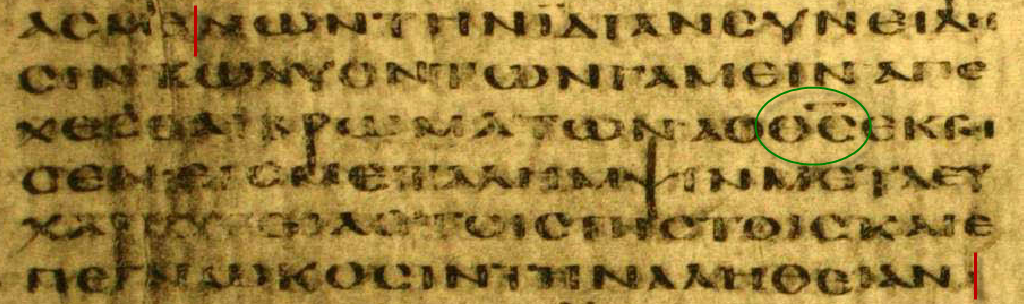 ΑϹΜΕΝΩΝΤΗΝΪΔΙΑΝϹΥΝΕΙΔΗ
ϹΙΝΚΩΛΥΟΝΤΩΝΓΑΜΕΙΝ ΑΠΕ
ΧΕϹΘΑΙΒΡΩΜΑΤΩΝΑΟΘ̅Ϲ̅ΕΚΤΙ
ϹΕΝΕΙϹΜΕΤΑΛΗΜΨΙΝΜΕΤΑΕΥ
ΧΑΡΙϹΤΙΑϹΤΟΙϹΠΙϹΤΟΙϹΚΑΙΕ
ΠΕΓΝΩΚΟϹΙΝΤΗΝΑΛΗΘΕΙΑΝ